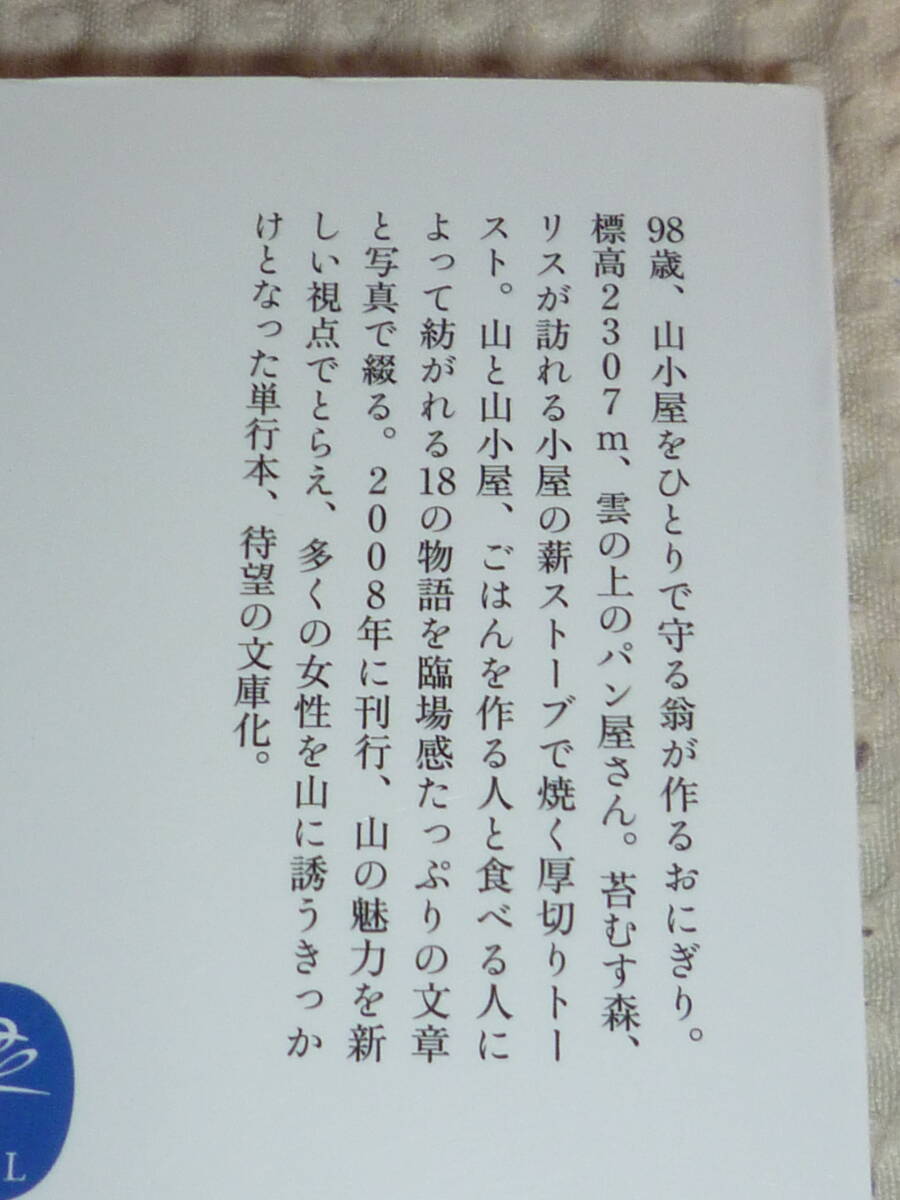 98歳、山小屋をひとりで守る翁が作るおにぎり。
標高2307m、雲の上のパン屋さん。苔むす森、
リスが訪れる小屋の薪ストーブで焼く厚切りトー
スト。山と山小屋、ごはんを作る人と食べる人に
よって紡がれる18の物語を臨場感たっぷりの文章
と写真で綴る。2008年に刊行、山の魅力を新
しい視点でとらえ、多くの女性を山に誘うきっか
けとなった単行本、待望の文庫化。
L